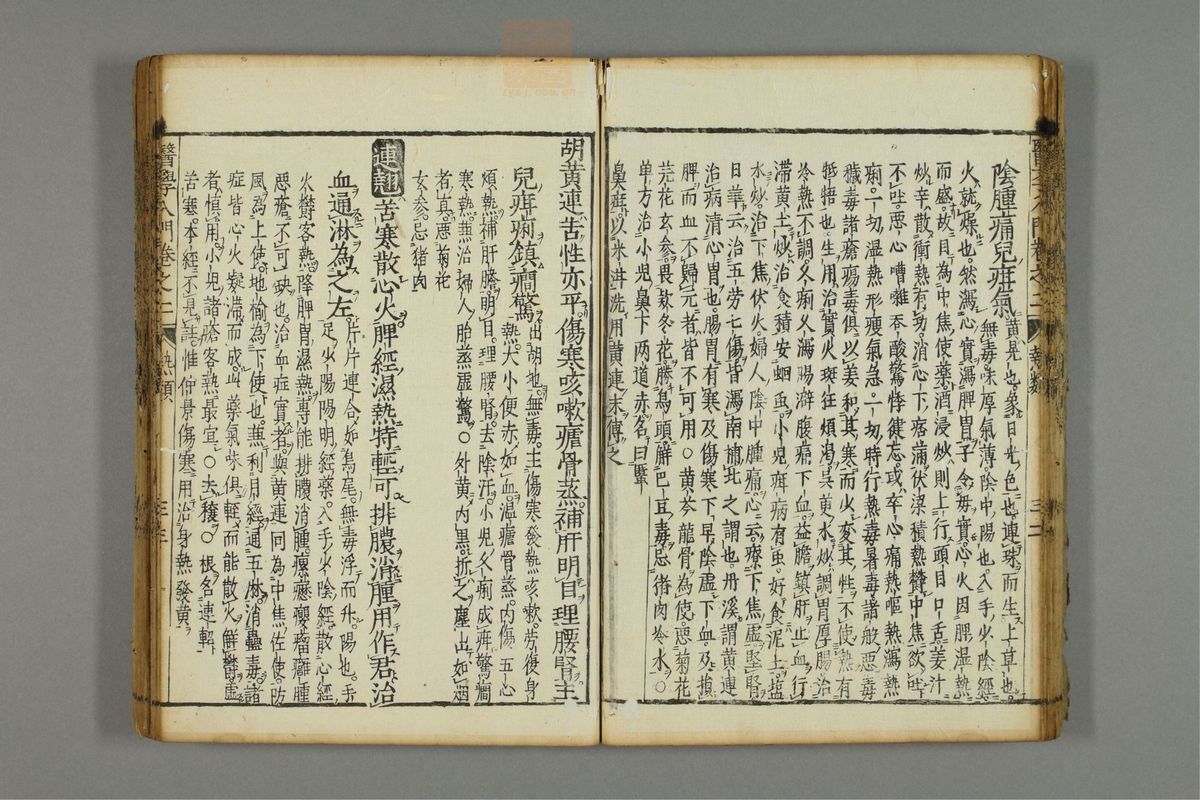 陰腫痛兒疳氣
黃見也象日光色也連珠而生上草也
無毒味厚氣薄陰中陽也入手少陰經
火就燥也然瀉心實瀉脾胃子令母實心火因脾濕熱
而盛故目為中焦使藥酒浸炒則上行頭目口舌姜汁
炒辛散衝熱有功消心下痞滿伏梁積熱鬱中焦欲吐
不吐惡心嘈雜吞酸驚悸健忘或卒心痛熱嘔熱瀉熱
痢一切濕熱形瘦氣急一切時行熱毒暑毒諸般惡毒
穢毒諸瘡瘍毒俱以姜和其寒而火變其性不使熱有
牴牾也生用治實火斑狂煩渴吳萸水炒調胃厚腸治
冷熱不調久痢又瀉腸澼腹痛下血益膽鎮肝止血行
滯黃土炒治食積安蛔虫小兒疳病有虫好食泥上塩
水炒治下焦伏火婦人陰中腫痛心云療下焦虛堅腎
日華云治五勞七傷皆瀉南補北之謂也丹溪謂黃連
治病清心胃也腸胃有寒及傷寒下早陰虛下血及損
脾而血不歸元者皆不可用〇黃芩龍骨為使惡菊花
芫花玄參畏欵冬花勝烏頭解巴豆毒忌猪肉冷水〇
单方治小兒鼻下两道赤名曰䘌
鼻疳以米泔洗用黃連末傅之
胡黃連苦性亦平傷寒咳嗽瘧骨蒸補肝明目理腰腎主
兒疳痢鎮癇驚
出胡地無毒主傷寒發熱咳嗽勞復身
熱大小便赤如血溫瘧骨蒸內傷五心
煩熱補肝膽明目理腰腎去陰汗小兒久痢成疳驚癇
寒熱兼治婦人胎蒸虛驚〇外黃內黒折之塵出如烟
者真惡菊花
玄参忌猪肉
連翹苦寒散心火脾經濕熱特輕可排膿消腫用作君治
血通淋為之左
片片連合如鳥尾無毒浮而升陽也手
足少陽陽明經藥入手少陰經散心經
火鬱客熱降脾胃濕熱專能排膿消腫瘰癧癭瘤癰腫
惡瘡不可缺也治血症實者與黃連同為中焦佐使防
風為上使地榆為下使也兼利月經通五淋消蠱毒諸
症皆心火凝滯而成此藥氣味俱輕而能散火鮮鬱虛
者慎用小兒諸瘡客熱最宜〇去穰〇根名連軺
苦寒本經不見註惟仲景傷寒用治身熱發黃
醫學入門卷之二
熱類